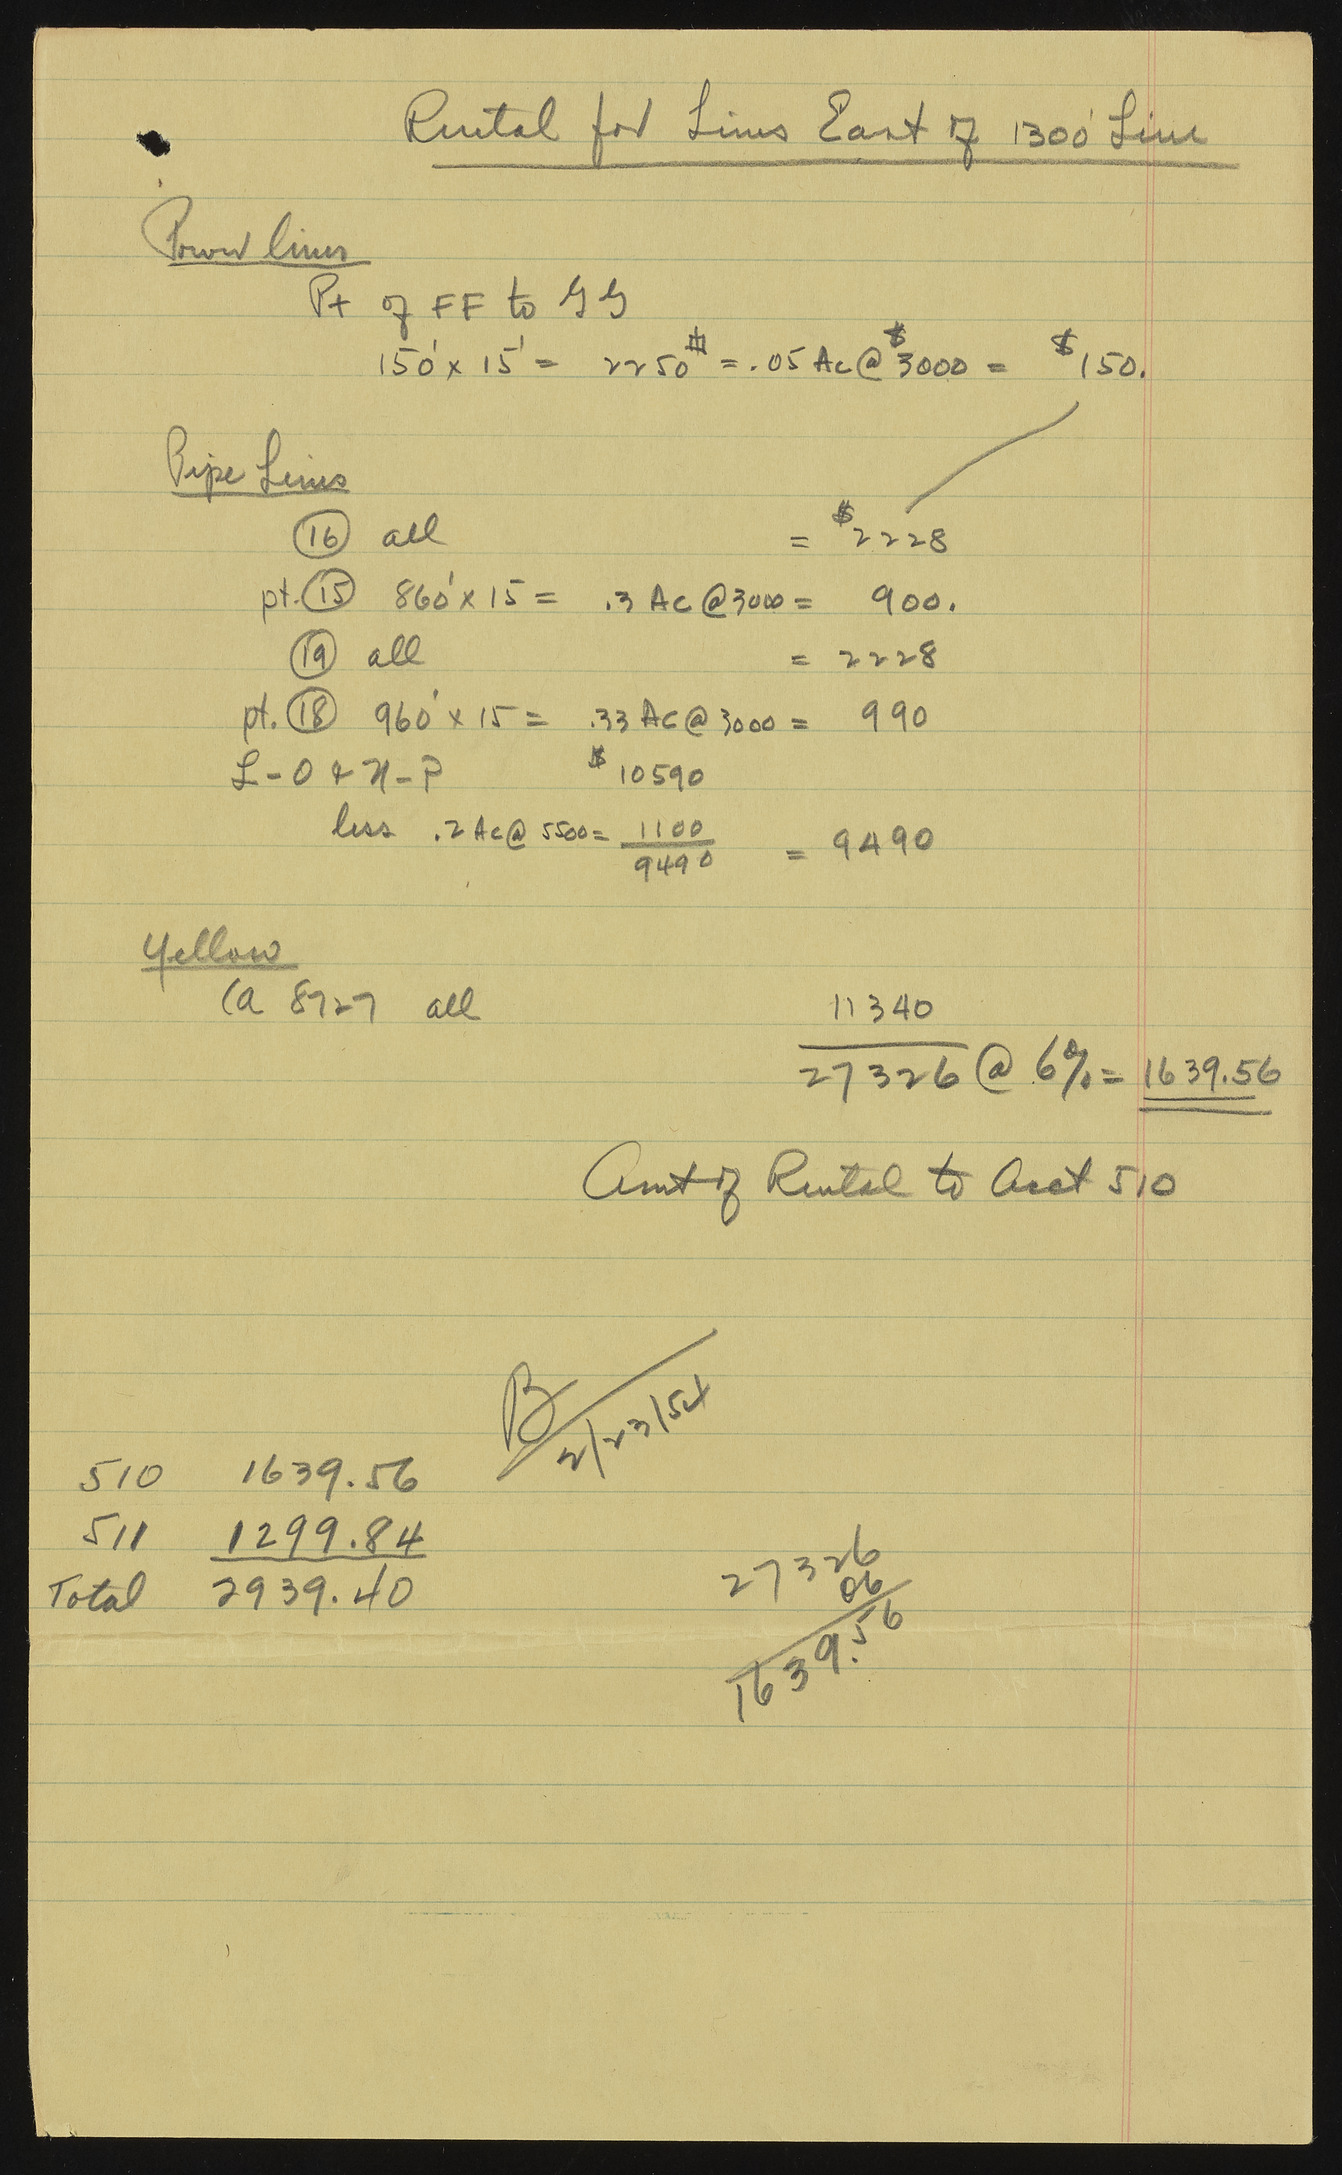 Rental for Lines East of 1300' Line
Power lines
Pt of FF to GG
150' x 15' = 2250# = .05 Ac @ $3000 = $150.
Pipe Lines
16 all = $2228
pt. 15 860' x 15 = .3 Ac @ 3000 = 900.
19 all = 2228
pt. 18 960' x 15 = .33 Ac @ 3000 = 990
L-O & N-P $10590
less .2 Ac @ 5500 = 1100
9490 = 9490
Yellow
Ca 8727 all 11340
27326 @ 6% = 1639.56
Amt of Rental to Acct 510
B
2/23/54
510 1639.56
511 1299.84
Total 2939.40
27326
06
1639.56